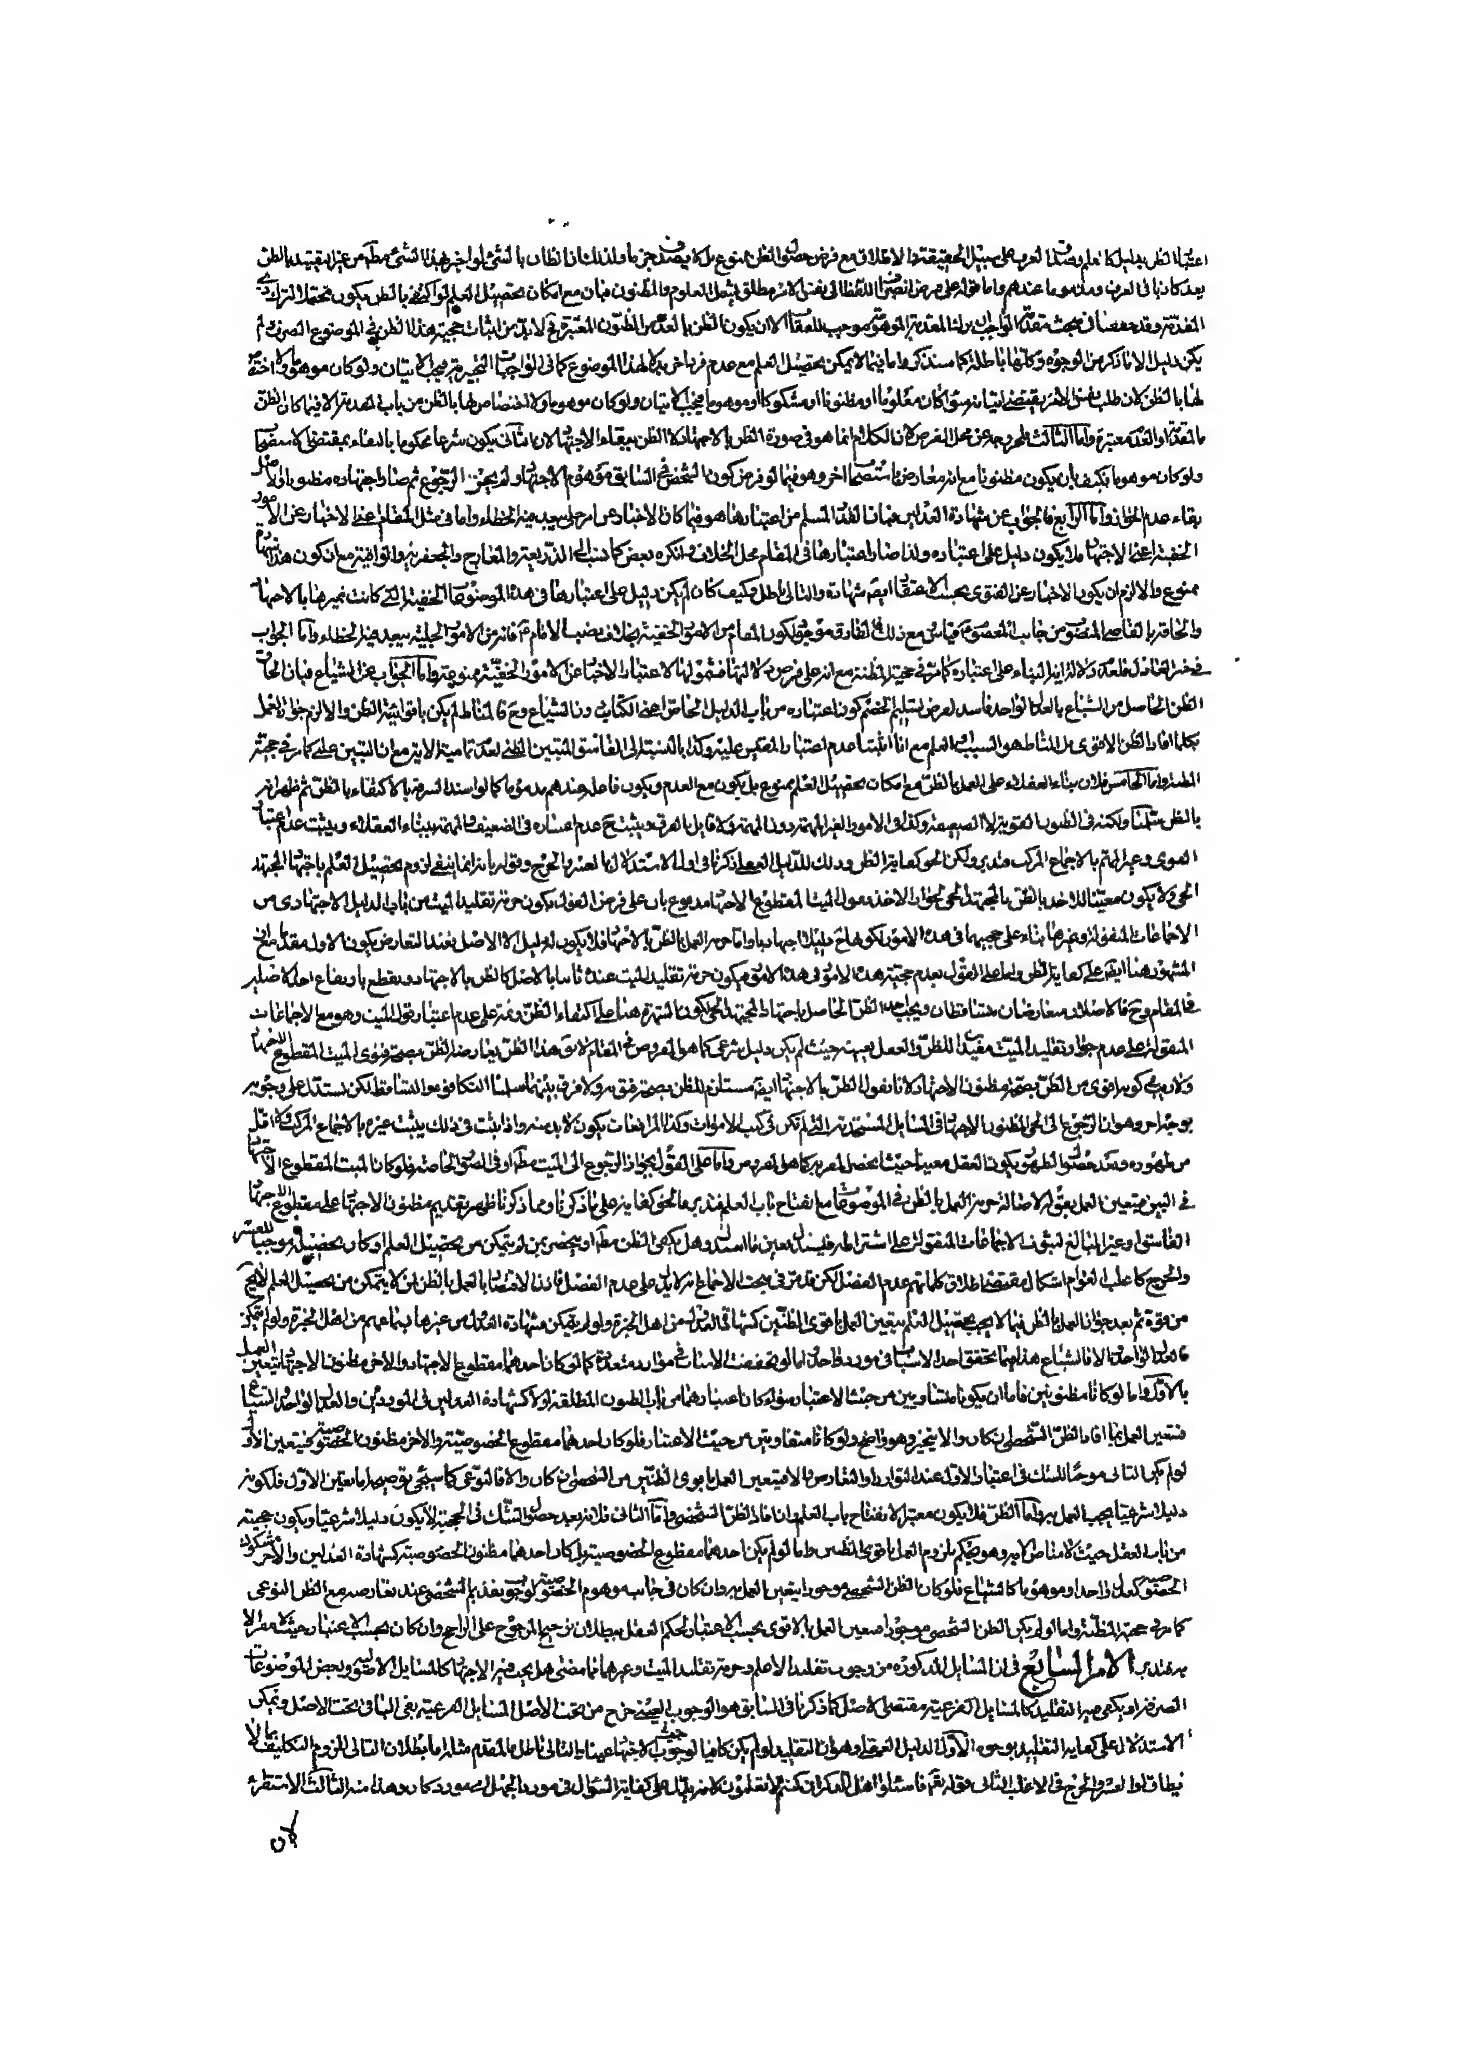 اعتبار الظن بدليل كالعلم وصدق العرب على سبيل الحقيقة والاطلاق مع فرض حصول الظن ممنوع بل لا يصدق جزما ولذلك اذا ظان بالشئ لو اخبر بهذا الشئ مطلقا من غير تقييد بالظن
يعد كاذبا في العرف ومذموما عندهم واما قوله على فرض انصراف اللفظ الى نفس الامر مطلق يشمل المعلوم والمظنون فبان مع امكان تحصيل العلم لو اكتفى بالظن يكون محتمل الترك
المقدمة وقد مضى في بحث مقدمة الواجب ان ترك المقدمة الموهومة موجب للعقاب الا ان يكون الظن بالعدم من الظنون المعتبرة فلا بد من اثبات حجية هذا الظن في الموضوع الصرف ولم
يكن دليل الا ما ذكر من الوجوه وكلها باطلة كما سنذكر واما فيما لا يمكن تحصيل العلم مع عدم فرد اخر بدلا لهذا الموضوع كما في الواجبات التخييرية فيجب الاتيان ولو كان موهوما ولا اختصاص
لها بالظن لان طلب نفس الامر يقتضي اتيانه سواء كان معلوما او مظنونا او مشكوكا او موهوما فيجب الاتيان ولو كان موهوما ولا اختصاص لها بالظن من باب المقدمة الا فيما كان الظن
بالمقدمة او العدم معتبرة واما الثالث فلخروجه عن محل الفرض لان الكلام انما هو في صورة الظن بالاجتهاد لا الظن ببقاء الاجتهاد لان الثاني يكون شرعا محكوما بالبقاء بمقتضى الاستصحاب
ولو كان موهوما فكيف بان يكون مظنونا مع انه معارض باستصحاب اخر وهو فيما لو فرض كون الشخص في السابق موهوم الاجتهاد ولم يجز الرجوع ثم صار اجتهاده مظنونا والاصل
بقاء عدم الجواز واما الرابع فالجواب عن شهادة العدلين فبان القدر المسلم من اعتبارها هو فيما كان الاخبار عن امر جلي يبعد فيه الخطاء واما في مثل المقام اعني الاخبار عن الامور
الخفية اعني الاجتهاد فلا يكون دليل على اعتباره ولذا صار اعتبارها في المقام محل الخلاف وانكره بعض كما نسب الى الذريعة والمعارج والجعفرية والوافية مع ان كون هذا شهادة
ممنوع والا لزم ان يكون الاخبار عن الفتوى بحسب الاعتقاد ايضا شهادة والتالي باطل وكيف كان لم يكن دليل على اعتبارها في هذه الموضوعات الخفية التي كانت تميزها بالاجتهاد
والحاقه بالقاضي المنصوب من جانب المعصوم قياس مع ذلك فالفارق موجود لكون المقام من الامور الخفية بخلاف نصب الامام فانه من الامور الجلية يبعد فيه الخطاء واما الجواب
في خبر العادل فلعدم دلالة اية النباء على اعتباره كما مر في حجية المظنة مع انه على فرض دلالتها فشمولها لاعتبار الاخبار عن الامور الخفية ممنوعة واما الجواب عن الشياع فبان الحاق
الظن الحاصل من الشياع بالعدل الواحد فاسد لفرض تسليم الخصم كون اعتباره من باب الدليل الخاص اعني الكتاب دون الشياع وح فالمناط لم يكن باقوائية الظن والا لزم جواز العمل
بكلما افاد الظن الاقوى بل المناط هو السبب دون العلم مع انا اثبتنا عدم اعتبار المقيس عليه وكذا بالنسبة الى الفاسق المتبين الظني لعدم تمامية الاية مع ان التبين علمي كما مر في حجية
المظنة واما الخامس فلان بناء العقلاء على العمل بالظن مع امكان تحصيل العلم ممنوع بل يكون مع العدم ويكون فاعله عندهم مذموما كما لو اسند السرقة بالاكتفاء بالظن ثم ظهر انه
بالظن سلمنا ولكنه في الظنون القوية لا الضعيفة وكذا في الامور الغير المهمة دون المهمة ولا قائل بالفرق ويثبت ح عدم اعتباره في الضعيف والمهمة ببناء العقلاء ويثبت عدم اعتبار
القوى وغير المهم بالاجماع المركب فتدبر ولكن الحق كفاية الظن وذلك للدليل العقلي اذ كرنا في اول الاستدلال من العسر والحرج وقوله بانه انما ينفي لزوم تحصيل العلم باجتهاد المجتهد
الحي ولا يكون معينا للاخذ بالظن بالمجتهد الحي لجواز الاخذ بقول الميت المقطوع الاجتهاد مدفوع بان على فرض القول بكون حرمة تقليد الميت من باب الدليل الاجتهادي من
الاجماعات المنقولة وغيرها بناء على حجيتها في هذه الامور لكونها ح دليلا اجتهاديا واما حرمة العمل بالظن بالاجتهاد فلا يكون له دليل الا الاصل فعند التعارض يكون الاول مقدما مع ان
المشهور هنا ايضا على كفاية الظن واما على القول بعدم حجية هذه الامور في هذه الامور فيكون حرمة تقليد الميت عنده ثابتا بالاصل كالظن بالاجتهاد ونقطع بارتفاع احد الاصلين
في المقام وح فالاصلان متعارضان متساقطان ويجب اخذ الظن الحاصل باجتهاد المجتهد الحي لكون الشهرة هنا على اكتفاء الظن وثمة على عدم اعتبار قول الميت وهو مع الاجماعات
المنقولة على عدم جواز تقليد الميت مفيد للظن والعمل بعينه حيث لم يكن دليل شرعي كما هو المفروض في المقام لا يق هذا الظن يعارض الظن بصحة فتوى الميت المقطوع الاجتهاد
ولا ريب في كونه اقوى من الظن بصحة مظنون الاجتهاد لانا نقول الظن بالاجتهاد ايضا مستلزم للظن بصحة فتوى به ولا فرق بينهما سلمنا التكافؤ مع التساقط لكن نستدل على وجوبه
بوجه اخر وهو ان الرجوع الى الحي المظنون الاجتهاد في المسائل المستحدثة التي لم تكن في كتب الاموات وكذا المرافعات يكون لا بد منه واذا ثبت في ذلك يثبت غيره بالاجماع المركب ولا اقل
من ظهوره وعند حصول الظن به يكون العقل معينا حيث يحصل المعرفة كما هو المفروض واما على القول بجواز الرجوع الى الميت مطلقا او في الصورة الخاصة فلو كان الميت المقطوع الاجتهاد
في البين فيتعين العمل بقوله لاصالة حرمة العمل بالظن في الموضوعات مع انفتاح باب العلم فتدبر فالحق كفاية على ما ذكرنا ومما ذكرنا ظهر تقديم مظنون الاجتهاد على مقطوع الاجتهاد
الفاسق او غير البالغ لثبوت الاجماعات المنقولة على اشتراطه فيستدل بعين ما استدل وهل يكفي الظن مطلقا او يختص بمن لم يتمكن من تحصيل العلم او كان تحصيله موجبا للعسر
والحرج كاغلب العوام اشكال مقتضى اطلاق كلماتهم عدم الفصل لكن قد مر في مبحث الاجماع انه لا يدل على عدم الفصل فاذن الاقتصار بالعمل بالظن لمن لا يتمكن من تحصيل العلم لا يخ
من قوة ثم بعد جواز العمل بالظن فيما لا يجب تحصيل العلم يتعين العمل باقوى الظنين كشهادة العدلين من اهل الخبرة ولو لم يتمكن فشهادة العدلين من غيرها بناء منهم من اهل الخبرة ولو لم يتمكن
فالعدل الواحد والا فالشياع هذا فيما تحقق احد الاسباب في مورد واحد واما لو تحققت الاسباب في موارد متعددة كما لو كان احدهما مقطوع الاجتهاد والاخر مظنون الاجتهاد يتعين العمل
بالاول واما لو كانا مظنونين فاما ان يكونا متساويين من حيث الاعتبار سواء كان اعتبارهما من باب الظنون المطلقة اولا كشهادة العدلين في الموردين والعدل الواحد والشياع
فيتعين العمل بما افاد الظن الشخصي ان كان والا يتخير وهو واضح ولو كانا متفاوتين من حيث الاعتبار فلو كان احدهما مقطوع الخصوصية والاخر مظنون الخصوصية فيتعين الاول
لو لم يكن الثاني موجبا للشك في اعتبار الاول عند التوارد والتعارض والا فيتعين العمل باقوى الظنين من الشخصي ان كان والا فالنوعي كما سيجئ توضيحه اما تعين الاول فلكونه
دليلا شرعيا يجب العمل به واما الظن فلا يكون معتبرا لانفتاح باب العلم وان افاد الظن الشخصي واما الثاني فلانه بعد حصول الشك في الحجية لا يكون دليلا شرعيا ويكون حجيته
من باب العقل حيث لا مناص الا به وهو يحكم بلزوم العمل باقوى الظنين واما لو لم يكن احدهما مقطوع الخصوصية بل كان احدهما مظنون الخصوصية كشهادة العدلين والاخر مشكوك
الخصوصية كعدل واحد او موهوما كالشياع فلو كان الظن الشخصي موجودا يتعين العمل به وان كان في جانب موهوم الخصوصية لوجوب تقديم الشخصي عند تعارضه مع الظن النوعي
كما مر في حجية المظنة واما لو لم يكن الظن الشخصي موجودا فيتعين العمل بالاقوى بحسب الاعتبار لحكم العقل ببطلان ترجيح المرجوح على الراجح وان كان بحسب الاعتبار حيث مفر الا
به فتدبر الامر السابع في ان المسائل المذكورة من وجوب تقليد الاعلم وحرمة تقليد الميت وغيرهما مما مضى هل يجب فيه الاجتهاد كالمسائل الاصولية وبعض الموضوعات
الصرفة او يكفي فيه التقليد كالمسائل الفرعية مقتضى الاصل كما ذكرنا في السابق هو الوجوب العيني خرج من تحت الاصل المسائل الفرعية بقي الباقي تحت الاصل ويمكن
الاستدلال على كفاية التقليد بوجوه الاول الدليل العقلي وهو ان التقليد لو لم يكن كافيا لوجب الاجتهاد عينا والتالي باطل فالمقدم مثله اما بطلان التالي فللزوم التكليف بما لا
يطاق او العسر والحرج في الاغلب الثاني قوله تعالى فاسئلوا اهل الذكر ان كنتم لا تعلمون لانه يدل على كفاية السؤال في مورد الجهل اي مورد كان وهذا منه الثالث الاستقراء
لان